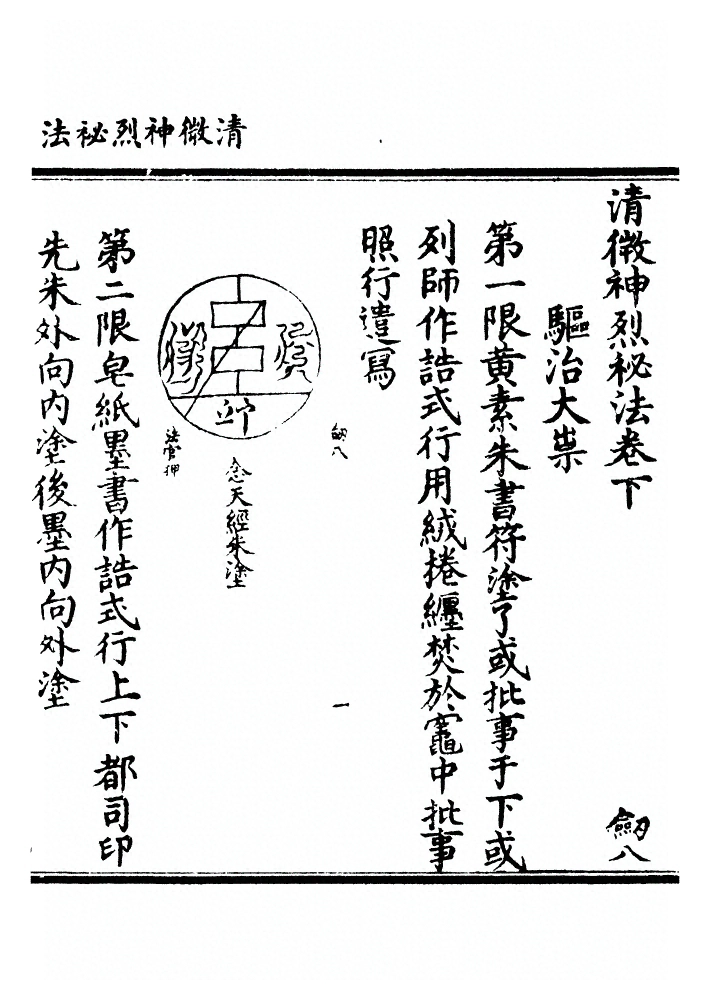 清微神烈祕法
清微神烈秘法卷下
劒八
驅治大祟
第一限黃素朱書符塗了或批事于下或
列師作誥式行用絨捲纏焚於竈中批事
照行遣寫
劒八
一
念天經朱塗
印
法官押
第二限皂紙墨書作誥式行上下都司印
先朱外向內塗後墨內向外塗